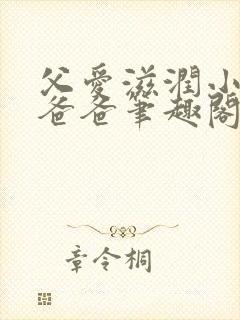 父愛滋潤小
爸爸筆趣閣
章令桐